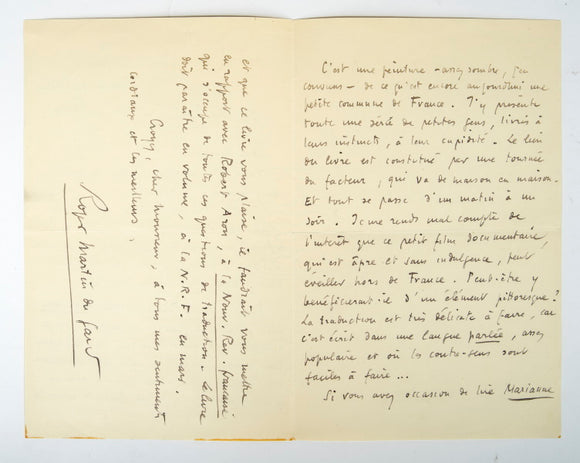 C'est une peinture — assez sombre, j'en
conviens — de ce qu'est encore aujourd'hui une
petite commune de France. J'y présente
toute une série de petites gens, livrés à
leurs instincts, à leur cupidité. Le lien
du livre est constitué par une tournée
du facteur, qui va de maison en maison.
Et tout se passe d'un matin à un
soir. Je me rends mal compte de
l'intérêt que ce petit film documentaire,
qui est âpre et sans indulgence, peut
éveiller hors de France. Peut-être y
bénéficierait-il d'un élément pittoresque?
La traduction est très délicate à faire, car
c'est écrit dans une langue parlée, assez
populaire et où les contre-sens sont
faciles à faire...
Si vous avez occasion de lire Marianne
et que ce livre vous plaise, il faudrait vous mettre
en rapport avec Robert Aron, à la Nouv. Rev. française
qui s'occupe de toutes ces questions de traduction. Le livre
doit paraître en volume, à la N.R.F. en mars.
Croyez, cher Monsieur, à tous mes sentiments
cordiaux et les meilleurs.
Roger Martin du Gard